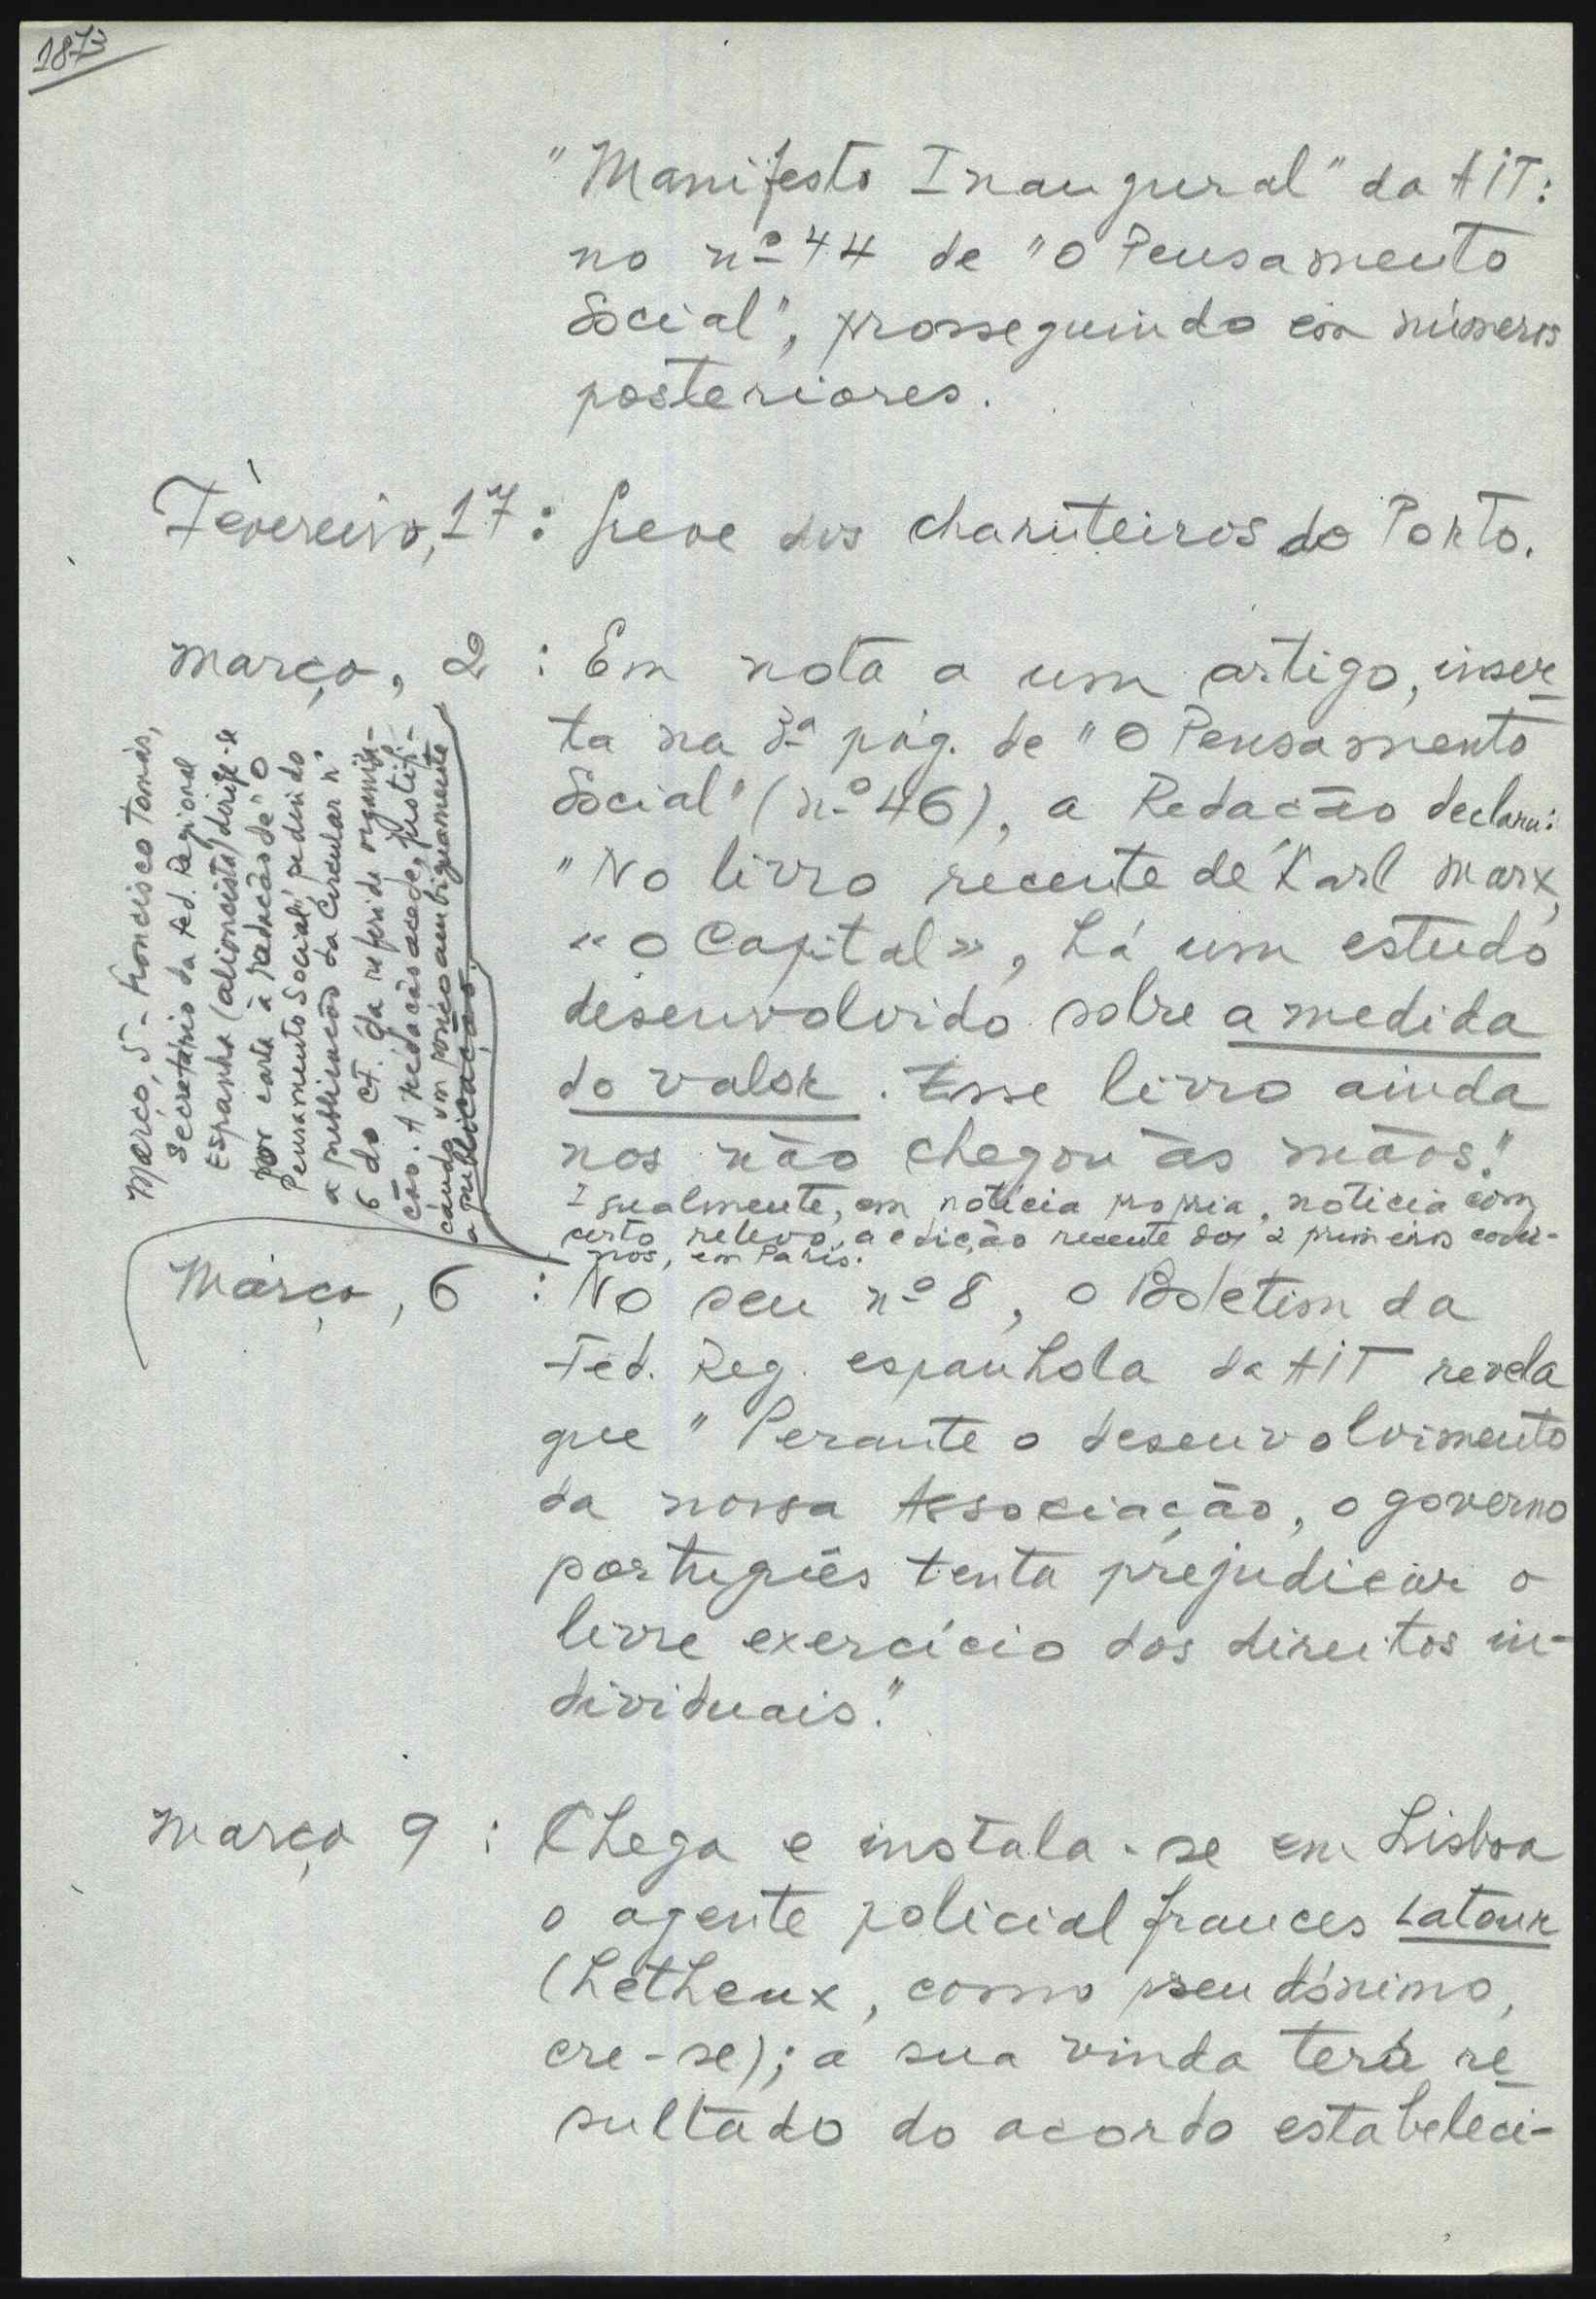 1873
"Manifesto Inaugural" da AIT:
no nº 44 de "O Pensamento
Social", prosseguindo em números
posteriores.
Fevereiro, 17: Greve dos charuteiros do Porto.
Março, 2 : Em nota a um artigo, inser-
ta na 3ª pág. de "O Pensamento
Social" (nº 46), a Redacão declara:
"No livro recente de Karl Marx,
«O Capital», há um estudo
desenvolvido sobre a medida
do valor. Esse livro ainda
nos não chegou às mãos."
Igualmente, em notícia propria, noticia com
certo relevo, a edição recente dos 2 primeiros cader-
nos, em Paris.
Março, 5 - Francisco Tomás,
Secretário da Fed. Regional
Espanha (alioncista) dirige-se
por carta à redacão de "O
Pensamento Social", pedindo
a publicacão da Circular nº
6 do CF. da referida organiza-
cão. A Redacão acede, justifi-
cando um pouco ambiguamente
a publicação.
Março, 6 : No seu nº 8, o Boletim da
Fed. Reg. espanhola da AIT revela
que "Perante o desenvolvimento
da nossa Associação, o governo
português tenta prejudicar o
livre exercício dos direitos in-
dividuais."
Março 9 : Chega e instala-se em Lisboa
o agente policial frances Latour
(Letheux, como pseudónimo,
cre-se); a sua vinda terá re-
sultado do acordo estabeleci-